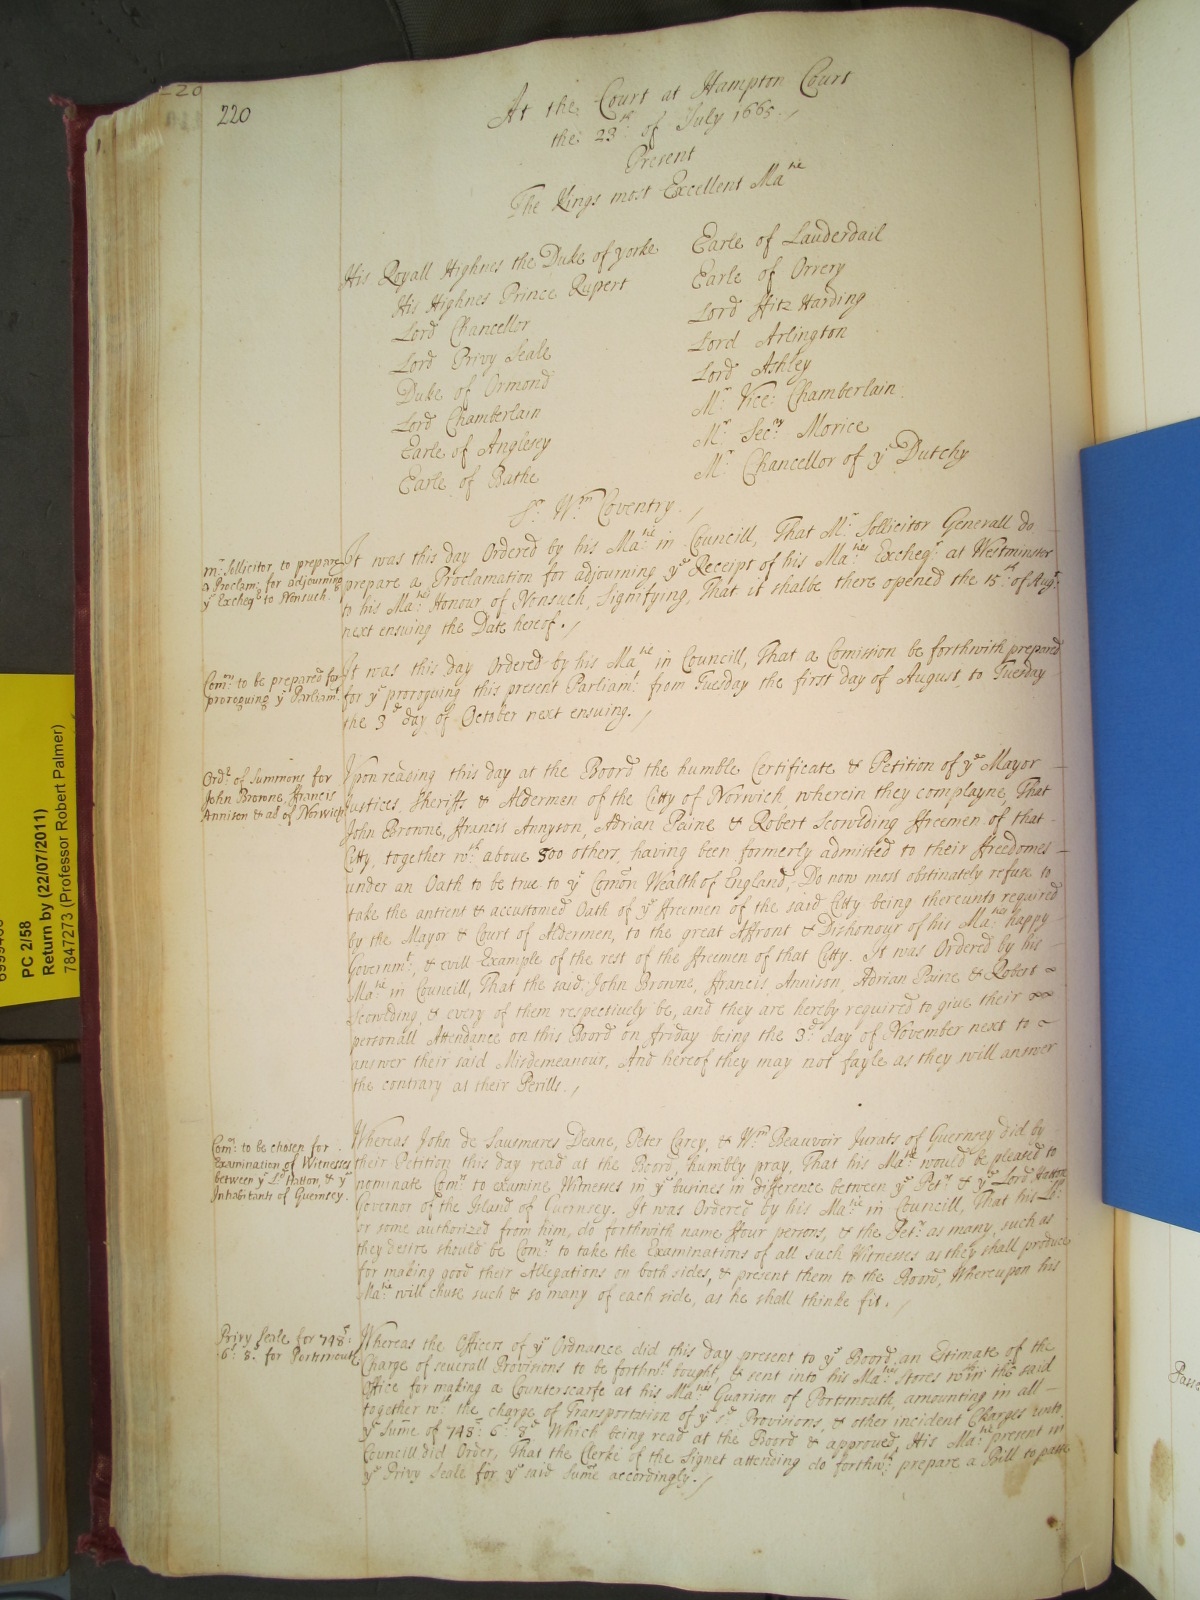 220
220
At the Court at Hampton Court
the 23th of July 1665.
Present
The Kings most Excellent Matie
His Royall Highnes the Duke of yorke
His Highnes Prince Rupert
Lord Chancellor
Lord Privy Seale
Duke of Ormond
Lord Chamberlain
Earle of Anglesey
Earle of Bathe
Earle of Lauderdail
Earle of Orrery
Lord Fitz Harding
Lord Arlington
Lord Ashley
Mr: Vice: Chamberlain
Mr: Secry Morice
Mr: Chancellor of ye Dutchy
Sr: Wm: Coventry.
Mr: Sollicitor, to prepare
a Proclam: for adjourning
ye Excheqr to Nonsuch.
It was this day Ordered by his Matie: in Councill, That Mr: Sollicitor Generall do
prepare a Proclamation for adjourning ye Receipt of his Maties Excheqr: at Westminster
to his Maties: Honour of Nonsuch, Signifying, That it shalbe there opened the 15th: of Augt:
next ensuing the Date hereof.
Comn: to be prepared for
proroguing ye Parliamt.
It was this day Ordered by his Matie in Councill, That a Comission be forthwith prepared
for ye proroguing this present Parliamt: from Tuesday the first day of August, to Tuesday
the 3d day of October next ensuing.
Ordr: of Summons for
John Browne, Francis
Annison & al of Norwich
Upon reading this day at the Boord the humble Certificate & Petition of ye Mayor
Justices, Sheriffs & Aldermen of the Citty of Norwich, wherein they complayne, That
John Browne, Francis Annyson, Adrian Paine & Robert Scowlding Freemen of that
Citty, together wth: above 500 others, having been formerly admitted to their Freedomes
under an Oath to be true to ye Comon Wealth of England, Do now most obstinately refuse to
take the antient & accustomed Oath of ye Freemen of the said Citty being thereunto required
by the Mayor & Court of Aldermen, to the great Affront & Dishonour of his Maties: happy
Governmt:, & evill Example of the rest of the Freemen of that Citty. It was Ordered by his
Matie: in Councill, That the said John Browne, Francis Annison, Adrian Paine & Robert
Scowlding, & every of them respectively be, and they are hereby required to give their
personall Attendance on this Boord on Friday being the 3d: day of November next to
answer their said Misdemeanour, And hereof they may not fayle as they will answer
the contrary at their Perills.
Comrs: to be chosen for
Examination of Witnesses
between ye Ld Hatton, & ye
Inhabitants of Guernsey.
Whereas John de Sausmares Deane, Peter Carey, & Wm: Beauvoir Jurats of Guernsey did by
their Petition this day read at the Boord, humbly pray, That his Matie: would be pleased to
nominate Comrs to examine Witnesses in ye busines in difference between ye Petrs: & ye Lord Hatton
Governor of the Island of Guernsey. It was Ordered by his Matie: in Councill, That his Lopp:
or some authorized from him, do forthwith name Four persons, & the Petrs: as many, such as
they desire should be Comrs: to take the Examinations of all such Witnesses as they shall produce
for making good their Allegations on both sides, & present them to the Boord, Whereupon his
Matie: will chuse such & so many of each side, as he shall thinke fit.
Privy Seale for 748l:
6s: 8d: for Portsmouth
Whereas the Officers of ye Ordnance did this day present to ye Boord, an Estimate of the
Charge of severall Provisions to be forthwth bought, & sent into his Maties: Stores within the said
Office for making a Counterscarfe at his Maties: Guarison of Portsmouth, amounting in all
together wth: the charge of Transportation of ye sd: Provisions, & other incident Charges unto
ye Sume of 748l: 6s: 8d Which being read at the Boord & approved, His Matie present in
Councill did Order, That the Clerke of the Signet attending do forthwth: prepare a Bill to passe
ye Privy Seale for ye said Sume accordingly.
PC 2/58
Return by (22/07/2011)
7847273 (Professor Robert Palmer)